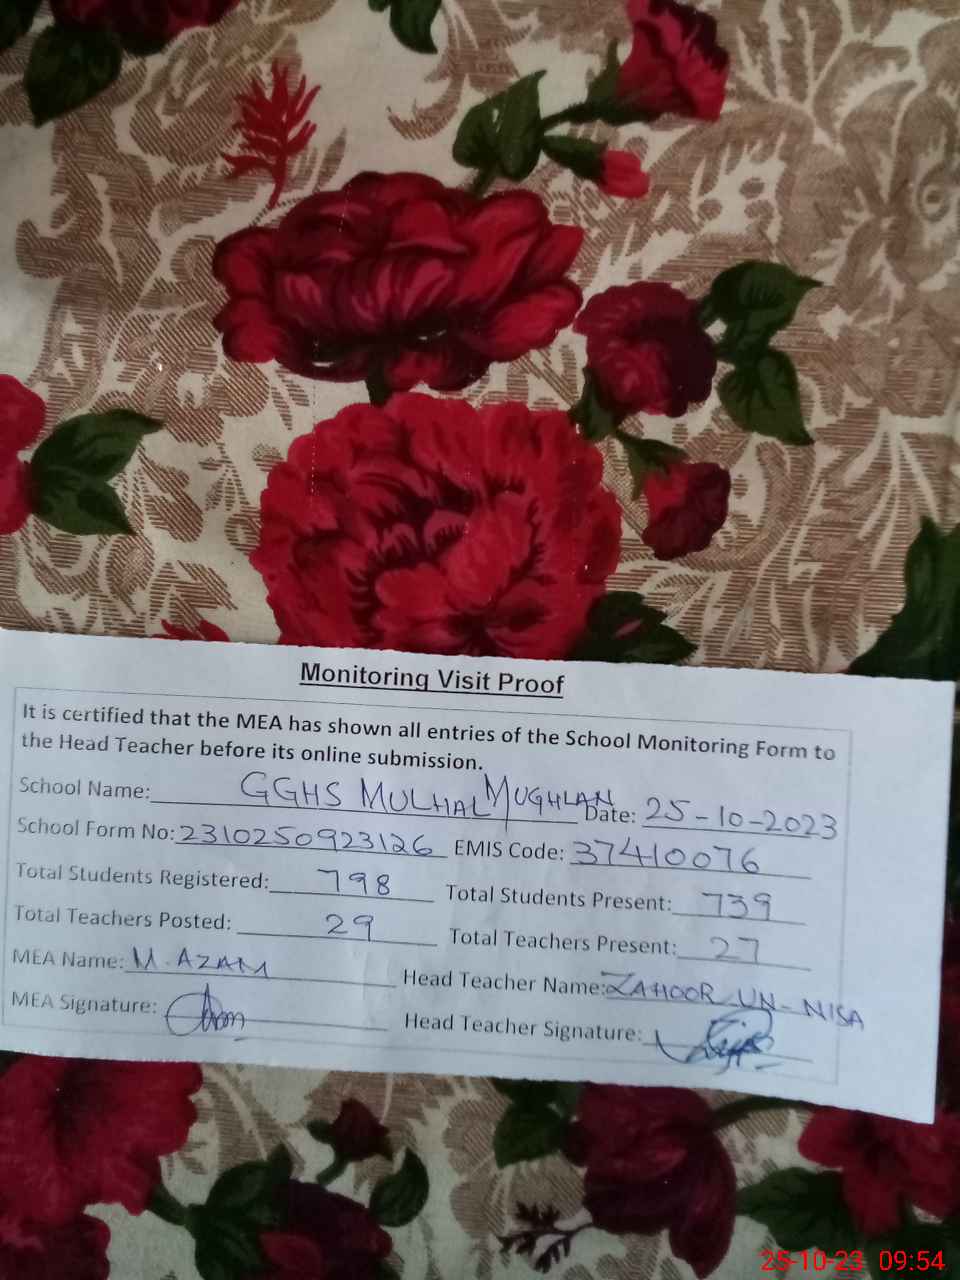 Monitoring Visit Proof
It is certified that the MEA has shown all entries of the School Monitoring Form to
the Head Teacher before its online submission.
School Name: GGHS MULHAL MUGHLAN Date: 25-10-2023
School Form No: 2310250923126 EMIS Code: 37410076
Total Students Registered: 798 Total Students Present: 739
Total Teachers Posted: 29 Total Teachers Present: 27
MEA Name: M. AZAM Head Teacher Name: ZAHOOR-UN-NISA
MEA Signature: Head Teacher Signature:
25-10-23 09:54